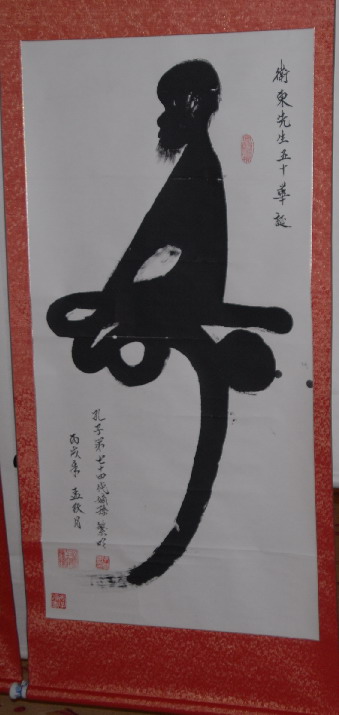 卫东先生五十華誕
寿
孔子第七十四代嫡孫繁
丙戌年孟秋月